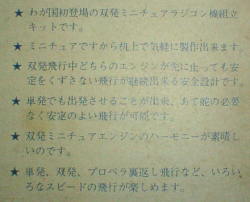 ★ わが国初登場の双発ミニチュアラジコン機組立
キットです。
★ ミニチュアですから机上で気軽に製作出来ます。
★ 双発飛行中どちらのエンジンが先に止っても安
定をくずさない飛行が継続出来る安全設計です。
★ 単発でも出発させることが出来、あて舵の必要
なく安定のよい飛行が可能です。
★ 双発ミニチュアエンジンのハーモニーが素晴し
いのです。
★ 単発、双発、プロペラ裏返し飛行など、いろい
ろなスピードの飛行が楽しめます。